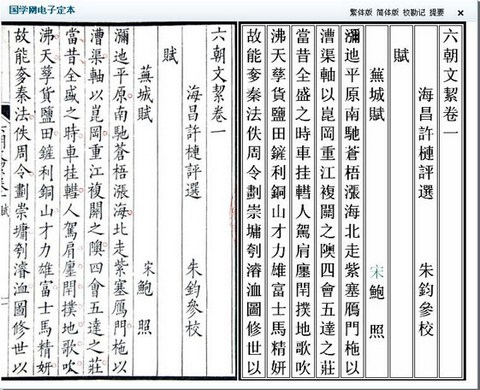 国学网电子定本
繁体版 简体版 校勘记 提要
六朝文絜卷一
海昌許槤評選 朱鈞參校
賦
蕪城賦 宋鮑 照
瀰迆平原南馳蒼梧漲海北走紫塞鴈門柂以
漕渠軸以崑岡重江複關之隩四會五達之莊
當昔全盛之時車挂轊人駕肩廛閈撲地歌吹
沸天孳貨鹽田鏟利銅山才力雄富士馬精妍
故能奓秦法佚周令劃崇墉刳濬洫圖修世以
六朝文絜卷一
海昌許槤評選 朱鈞參校
賦
蕪城賦 宋鮑 照
瀰迆平原南馳蒼梧漲海北走紫塞鴈門柂以
漕渠軸以崑岡重江複關之隩四會五達之莊
當昔全盛之時車挂轊人駕肩廛閈撲地歌吹
沸天孳貨鹽田鏟利銅山才力雄富士馬精妍
故能奓秦法佚周令劃崇墉刳濬洫圖修世以